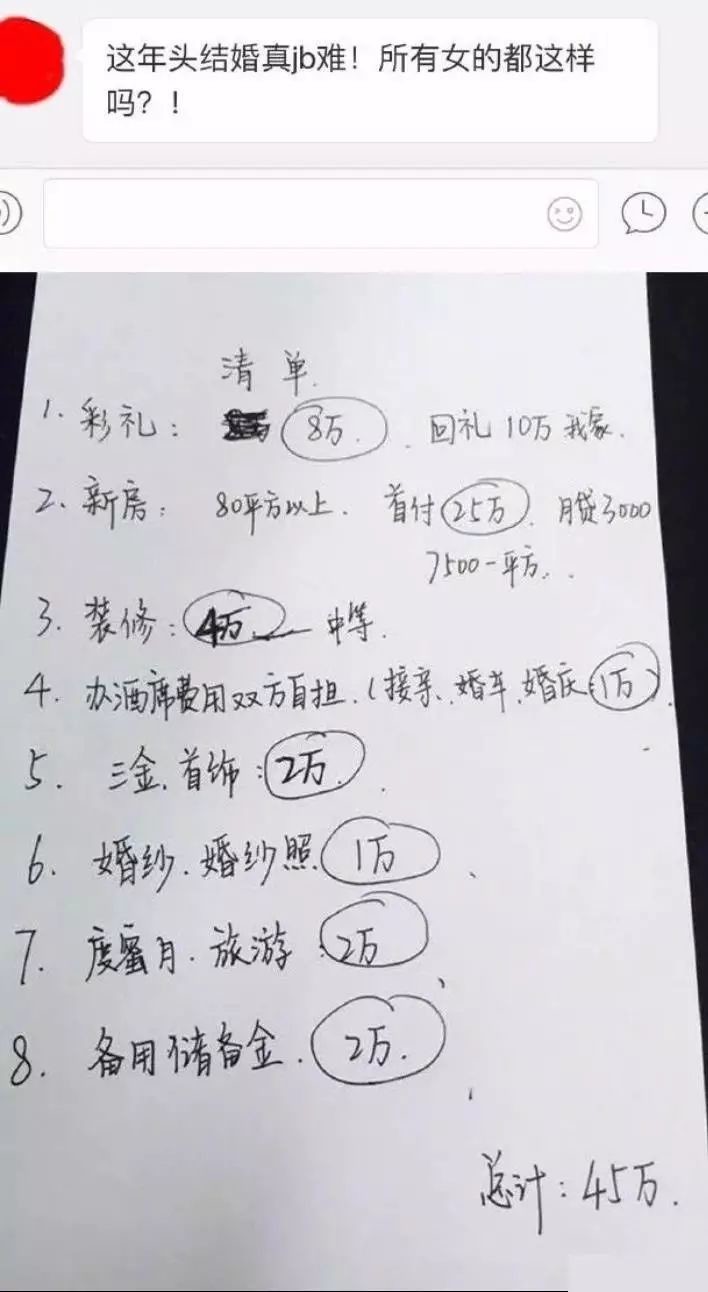 这年头结婚真jb难！所有女的都这样
吗？！
清单.
1. 彩礼： 8万. 回礼10万我家.
2、新房： 80平方以上. 首付25万. 月贷3000
7500一平方..
3. 装修：4万 — 中等.
4. 办酒席费用双方自担.（接亲、婚车、婚庆：1万）.
5. 三金.首饰：2万.
6. 婚纱.婚纱照 1万、
7. 度蜜月.旅游：2万、
8. 备用储备金. 2万.
总计：45万.